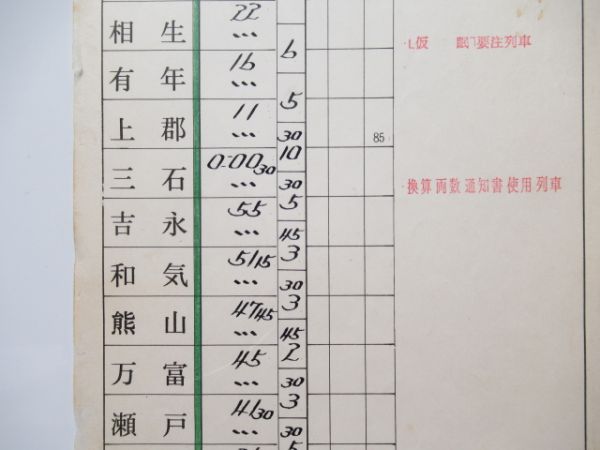 相生 22 ...
6
L仮 眠 要注列車
有年 16 ...
5
上郡 11 ...
30
85
三石 0-00 30 ...
10
30
換算両数通知書使用列車
吉永 55 ...
5
45
和気 51 15 ...
3
30
熊山 47 45 ...
3
45
万富 45 ...
2
30
瀬戸 41 30 ...
3
30